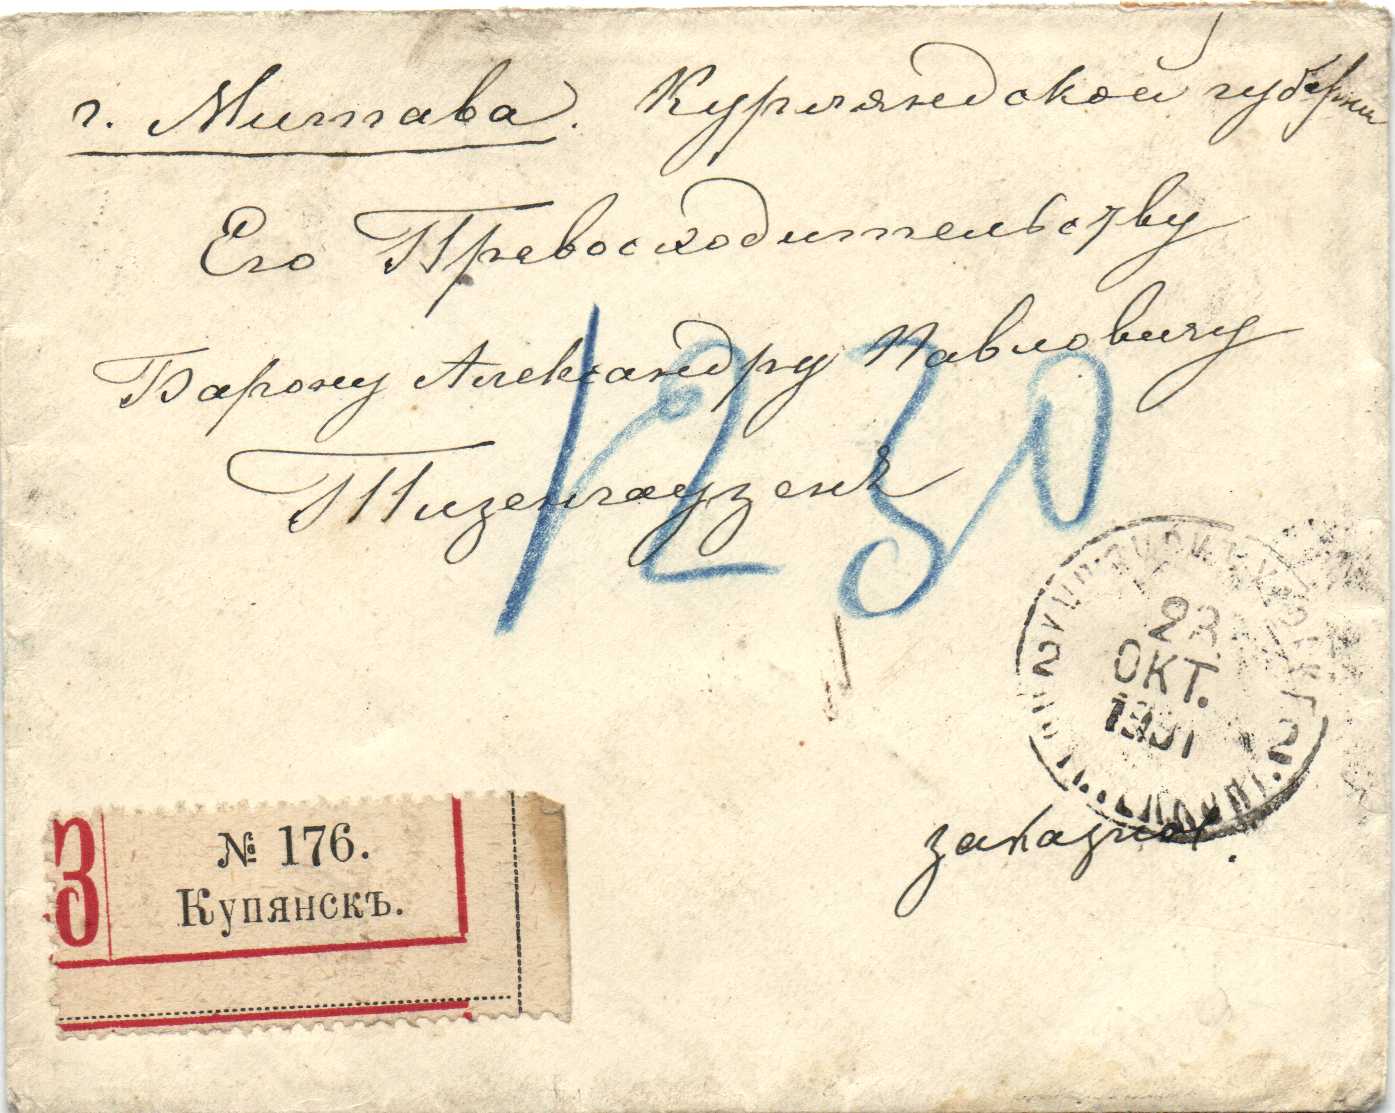 г. Митава. Курляндской губернии
Его Превосходительству
Барону Александру Павловичу
Тизенгаузенъ
1230
23
ОКТ.
2
2
заказное.
З
№ 176.
Купянскъ.